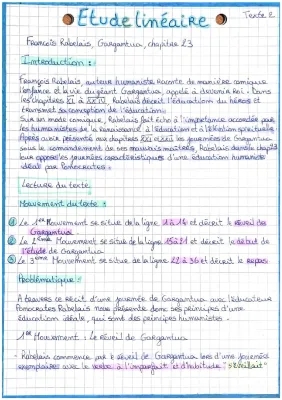 Etude linéaire
Texte 2
François Rabelais, Gargantua, chapitre 23
Introduction :
François Rabelais, auteur humaniste raconte de manière comique
l'enfance et la vie du géant Gargantua, appelé à devenir Roi. Dans
les chapitres XI à XXIV, Rabelais décrit l'éducation du héros et
transmet sa conception de l'éducation.
Sur un mode comique, Rabelais fait écho à l'importance accordée par
les humanistes de la Renaissance à l'éducation et à l'élévation spirituelle.
Après avoir présenté aux chapitres XXI et XXII les journées de Gargantua
sous le commandement de ses mauvais maîtres, Rabelais dans le chap 23
leur oppose les journées caractéristiques d'une éducation humaniste
idéale par Ponocrates.
Lecture du texte
Mouvement du texte :
① Le 1er Mouvement se situe de la ligne 1 à 14 et décrit le réveil de
Gargantua
② Le 2ème Mouvement se situe de la ligne 15 à 21 et décrit le début de
l'étude de Gargantua
③ Le 3ème Mouvement se situe de la ligne 22 à 36 et décrit le repas
Problématique :
A travers ce récit d'une journée de Gargantua avec l'éducateur
Ponocrates Rabelais nous présente donc ses principes d'une
éducation idéale, qui sont des principes humanistes.
1er Mouvement : Le réveil de Gargantua
- Rabelais commence par le réveil de Gargantua lors d'une journée
exemplaire avec le verbe à l'imparfait et d'habitude : "s'éveillait"